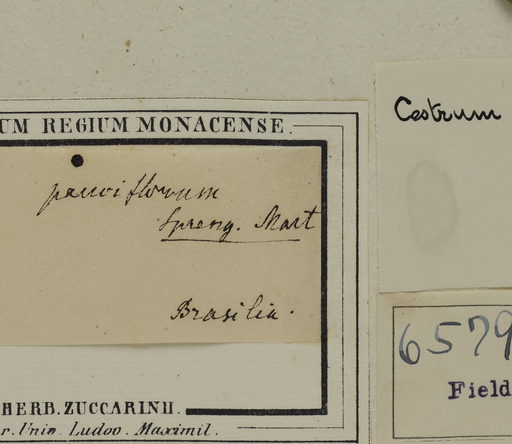 UM REGIUM MONACENSE.
pauciflorum
Spreng. Mart
Brasilia.
HERB. ZUCCARINII.
r. Univ. Ludov. Maximil.
Cestrum
6579
Field